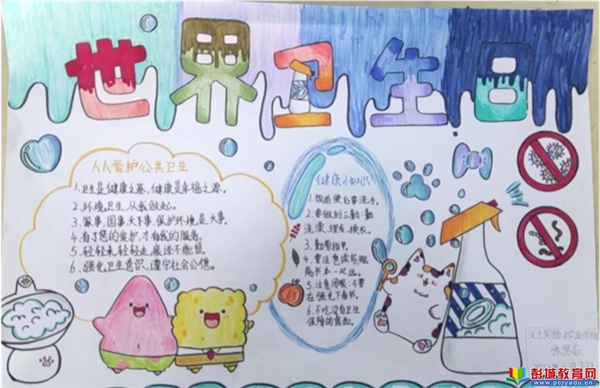 世界卫生日
人人爱护公共卫生
1.卫生是健康之基,健康是幸福之源。
2.环境卫生,从我做起。
3.家事,国事,天下事,保护环境是大事。
4.有了您的爱护,才有我的服务。
5.轻轻来,轻轻走,
6.强化卫生意识,遵守社会公德。
健康小知识
1.饭前便后要洗手。
2.要做到三勤:勤
洗澡、理发、换衣。
3.勤剪指甲。
4.要注意读写眼
离书本一尺远。
5.注意用眼,不要
在强光下看书。
6.不吃没有卫生
保障的食品。
彭城教育网
www.pcjyedu.cn